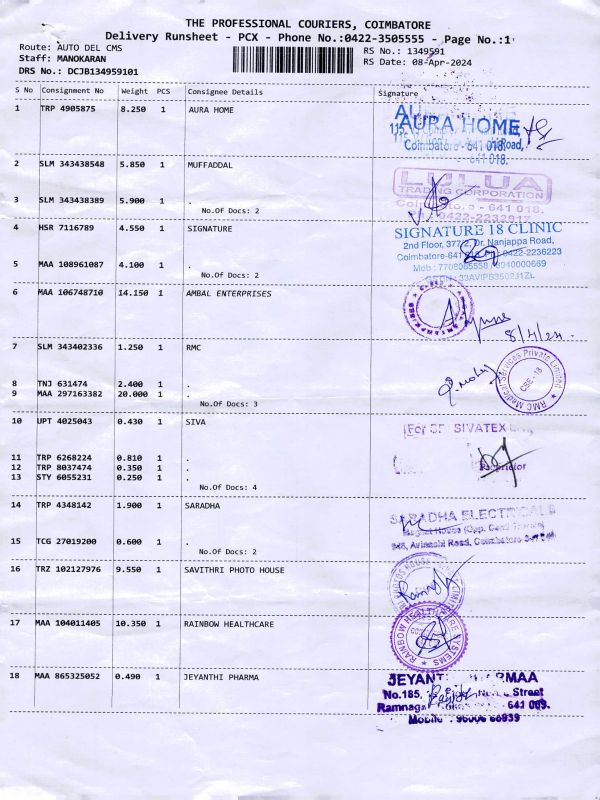 THE PROFESSIONAL COURIERS, COIMBATORE
Delivery Runsheet - PCX - Phone No.:0422-3505555 - Page No.:1
Route: AUTO DEL CMS
RS No.: 1349591
Staff: MANOKARAN
RS Date: 08-Apr-2024
DRS No.: DCJB134959101
S No Consignment No Weight PCS Consignee Details Signature
1 TRP 4905875 8.250 1 AURA HOME
AURA HOME
Road,
Coimbatore - 641 018.
- 641 018.
2 SLM 343438548 5.850 1 MUFFADDAL
LULUA
TRADING CORPORATION
- 641 018.
0422-2232917
3 SLM 343438389 5.900 1 .
No.Of Docs: 2
4 HSR 7116789 4.550 1 SIGNATURE
SIGNATURE 18 CLINIC
2nd Floor, 377/2, Dr. Nanjappa Road,
Coimbatore-641 0422-2236223
Mob : 7708065558
33AVIPS3502J1ZL
5 MAA 108961087 4.100 1 .
No.Of Docs: 2
6 MAA 106748710 14.150 1 AMBAL ENTERPRISES
8/4/24
7 SLM 343402336 1.250 1 RMC
RMC Medical Services Private Limited
CBE-18
8 TNJ 631474 2.400 1 .
9 MAA 297163382 20.000 1 .
No.Of Docs: 3
10 UPT 4025043 0.430 1 SIVA
For SRI SIVATEX
Proprietor
11 TRP 6268224 0.810 1 .
12 TRP 8037474 0.350 1 .
13 STY 6055231 0.250 1 .
No.Of Docs: 4
14 TRP 4348142 1.900 1 SARADHA
SARADHA ELECTRICALS
Magnet House (Opp.
Avinashi Road, Coimbatore
15 TCG 27019200 0.600 1 .
No.Of Docs: 2
16 TRZ 102127976 9.550 1 SAVITHRI PHOTO HOUSE
17 MAA 104011405 10.350 1 RAINBOW HEALTHCARE
RAINBOW HEALTHCARE SYSTEMS
18 MAA 865325052 0.490 1 JEYANTHI PHARMA
No.185, Street
Ramnagar 641 009.
Mobile : 96006 66939